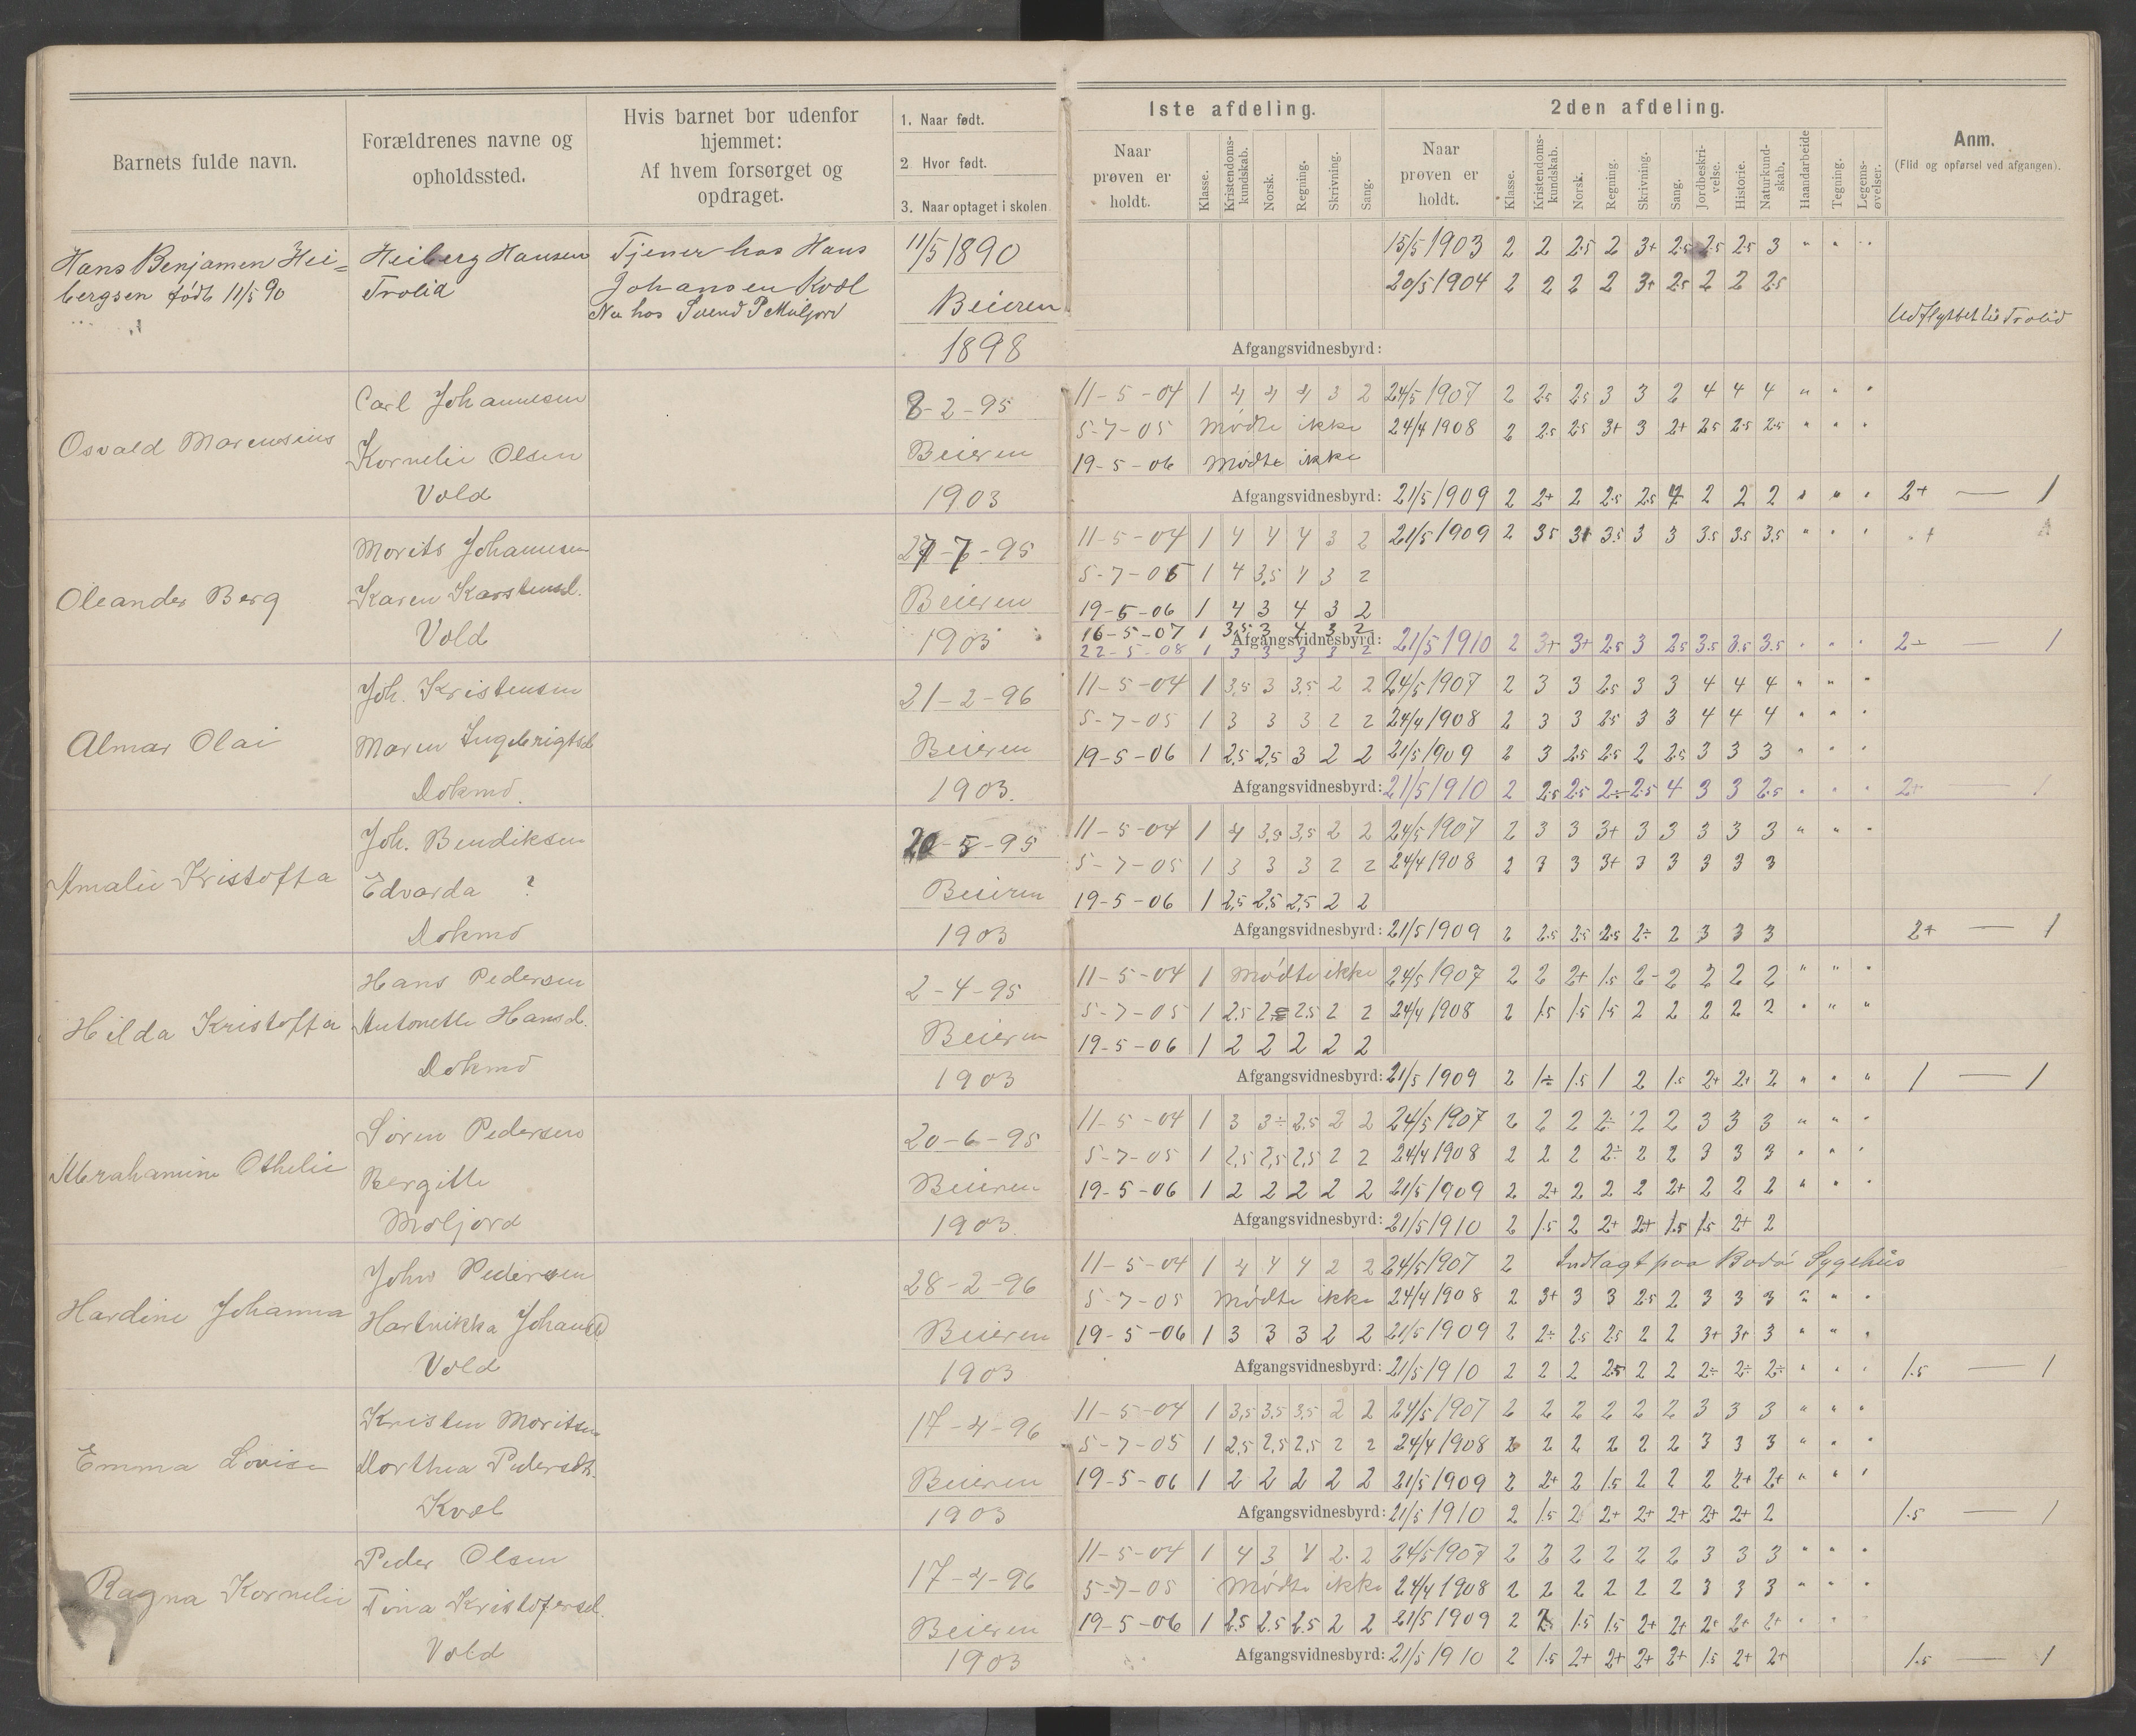 Barnets fulde navn.
Forældrenes navne og
opholdssted.
Hvis barnet bor udenfor
hjemmet:
Af hvem forsørget og
opdraget.
1. Naar født.
2 Hvor født.
3. Naar optaget i skolen
1ste afdeling.
Naar
prøven er
holdt.
Klasse.
Kristendoms-
kundskab.
Norsk.
Regning.
Skrivning.
Sang.
2den afdeling.
Naar
prøven er
holdt.
Klasse.
Kristendoms-
kundskab.
Norsk.
Regning.
Skrivning.
Sang.
Jordbeskri-
velse.
Historie.
Naturkund-
skab.
Haandarbeide
Tegning.
Legems-
øvelser.
Anm.
(Flid og opførsel ved afgangen).
Hans Benjamen Hei=
bergsen født 11/5 90
Heiberg Hansen
Trolid
Tjener hos Hans
Johansen Kvæl
Nu hos Svend P Moljord
11/5 1890
Beieren
1898
15/5 1903 2 2 2.5 2 3+ 2.5 2.5 2.5 3 " " "
20/5 1904 2 2 2 2 3+ 2.5 2 2 2.5
Udflyttet til Trolid
Afgangsvidnesbyrd:
Osvald Marensius
Carl Johannesen
Kornelie Olsen
Vold
8-2-95
Beieren
1903
11-5-04 1 4 4 4 3 2 24/5 1907 2 2.5 2.5 3 3 2 4 4 4 " " "
5-7-05 Mødte ikke 24/4 1908 2 2.5 2.5 3+ 3 2+ 2.5 2.5 2.5 " " "
19-5-06 Mødte ikke
Afgangsvidnesbyrd: 21/5 1909 2 2+ 2 2.5 2.5 4 2 2 2 " " " 2+ — 1
Oleander Berg
Morits Johannesen
Karen Karstensd.
Vold
Beieren
1903
11-5-04 1 4 4 4 3 2 21/5 1909 2 3.5 3.5 3 3 3.5 3.5 3.5 " " "
5-7-05 1 4 3,5 4 3 2
19-5-06 1 4 3 4 3 2
16-5-07 1 3,5 3 4 3 2
22-5-08 1 3 3 3 3 2
Afgangsvidnesbyrd: 21/5 1910 2 3+ 3+ 2.5 3 2.5 3.5 3.5 3.5 " " " 2÷ — 1
Almar Olai
Joh. Kristensen
Maren Ingebrigtsd
Dokmo.
21-2-96
Beieren
1903.
11-5-04 1 3,5 3 3,5 2 2 24/5 1907 2 3 3 2.5 3 3 4 4 4 " " "
5-7-05 1 3 3 3 2 2 24/4 1908 2 3 3 2.5 3 3 4 4 4 " " "
19-5-06 1 2,5 2,5 3 2 2 21/5 1909 2 3 2.5 2.5 2 2.5 3 3 3 " " "
Afgangsvidnesbyrd: 21/5 1910 2 2.5 2.5 2÷ 2.5 4 3 3 2.5 " " " 2+ — 1
Amalie Kristoffa
Joh. Bendiksen
Edvarda ?
Dokmo
20-5-95
Beieren
1903
11-5-04 1 4 3,5 3,5 2 2 24/5 1907 2 3 3 3+ 3 3 3 3 3 " " "
5-7-05 1 3 3 3 2 2 24/4 1908 2 3 3 3+ 3 3 3 3 3
19-5-06 1 2,5 2,5 2,5 2 2
Afgangsvidnesbyrd: 21/5 1909 2 2.5 2.5 2.5 2÷ 2 3 3 3 2+ — 1
Hilda Kristoffa
Hans Pedersen
Antonette Hansd.
Dokmo
2-4-95
Beieren
1903
11-5-04 1 Mødte ikke 24/5 1907 2 2 2+ 1.5 2- 2 2 2 2 " " "
5-7-05 1 2.5 2,5 2.5 2 2 24/4 1908 2 1.5 1.5 1.5 2 2 2 2 2 " " "
19-5-06 1 2 2 2 2 2
Afgangsvidnesbyrd: 21/5 1909 2 1÷ 1.5 1 2 1.5 2+ 2+ 2 " " " 1 — 1
Abrahamine Othelie
Søren Pedersen
Bergitte
Moljord
20-6-95
Beieren
1903
11-5-04 1 3 3÷ 2.5 2 2 24/5 1907 2 2 2 2÷ 2 2 3 3 3 " " "
5-7-05 1 2,5 2,5 2,5 2 2 24/4 1908 2 2 2 2÷ 2 2 3 3 3 " " "
19-5-06 1 2 2 2 2 2 21/5 1909 2 2+ 2 2 2 2+ 2 2 2 " " "
Afgangsvidnesbyrd: 21/5 1910 2 1.5 2 2+ 2+ 1.5 1.5 2+ 2
Hardine Johanna
John Pedersen
Hartvikka Johansd
Vold
28-2-96
Beieren
1903
11-5-04 1 4 4 4 2 2 24/5 1907 2 Indlagt paa Bodø Sygehus
5-7-05 Mødte ikke 24/4 1908 2 3+ 3 3 2.5 2 3 3 3 " " "
19-5-06 1 3 3 3 2 2 21/5 1909 2 2÷ 2.5 2.5 2 2 3+ 3+ 3 " " "
Afgangsvidnesbyrd: 21/5 1910 2 2 2 2.5 2 2 2÷ 2÷ 2÷ " " " 1.5 — 1
Emma Lovise
Kristen Moritsen
Dorthea Pedersdt.
Kvæl
17-4-96
Beieren
1903
11-5-04 1 3,5 3.5 3,5 2 2 24/5 1907 2 2 2 2 2 2 3 3 3 " " "
5-7-05 1 2,5 2,5 2,5 2 2 24/4 1908 2 2 2 2 2 2 3 3 3 " " "
19-5-06 1 2 2 2 2 2 21/5 1909 2 2+ 2 1.5 2 2 2 2+ 2+ " " "
Afgangsvidnesbyrd: 21/5 1910 2 1.5 2 2+ 2+ 2+ 2+ 2+ 2 1.5 — 1
Ragna Kornelie
Peder Olsen
Tina Kristofersd.
Vold
17-4-96
Beieren
1903
11-5-04 1 4 3 4 2 2 24/5 1907 2 2 2 2 2 2 3 3 3 " " "
5-7-05 Mødte ikke 24/4 1908 2 2 2 2 2 2 3 3 3 " " "
19-5-06 1 2.5 2.5 2.5 2 2 21/5 1909 2 2 1.5 1.5 2+ 2+ 2+ 2+ 2+ " " "
Afgangsvidnesbyrd: 21/5 1910 2 1.5 2+ 2+ 2+ 2+ 1.5 2+ 2+ 1.5 — 1